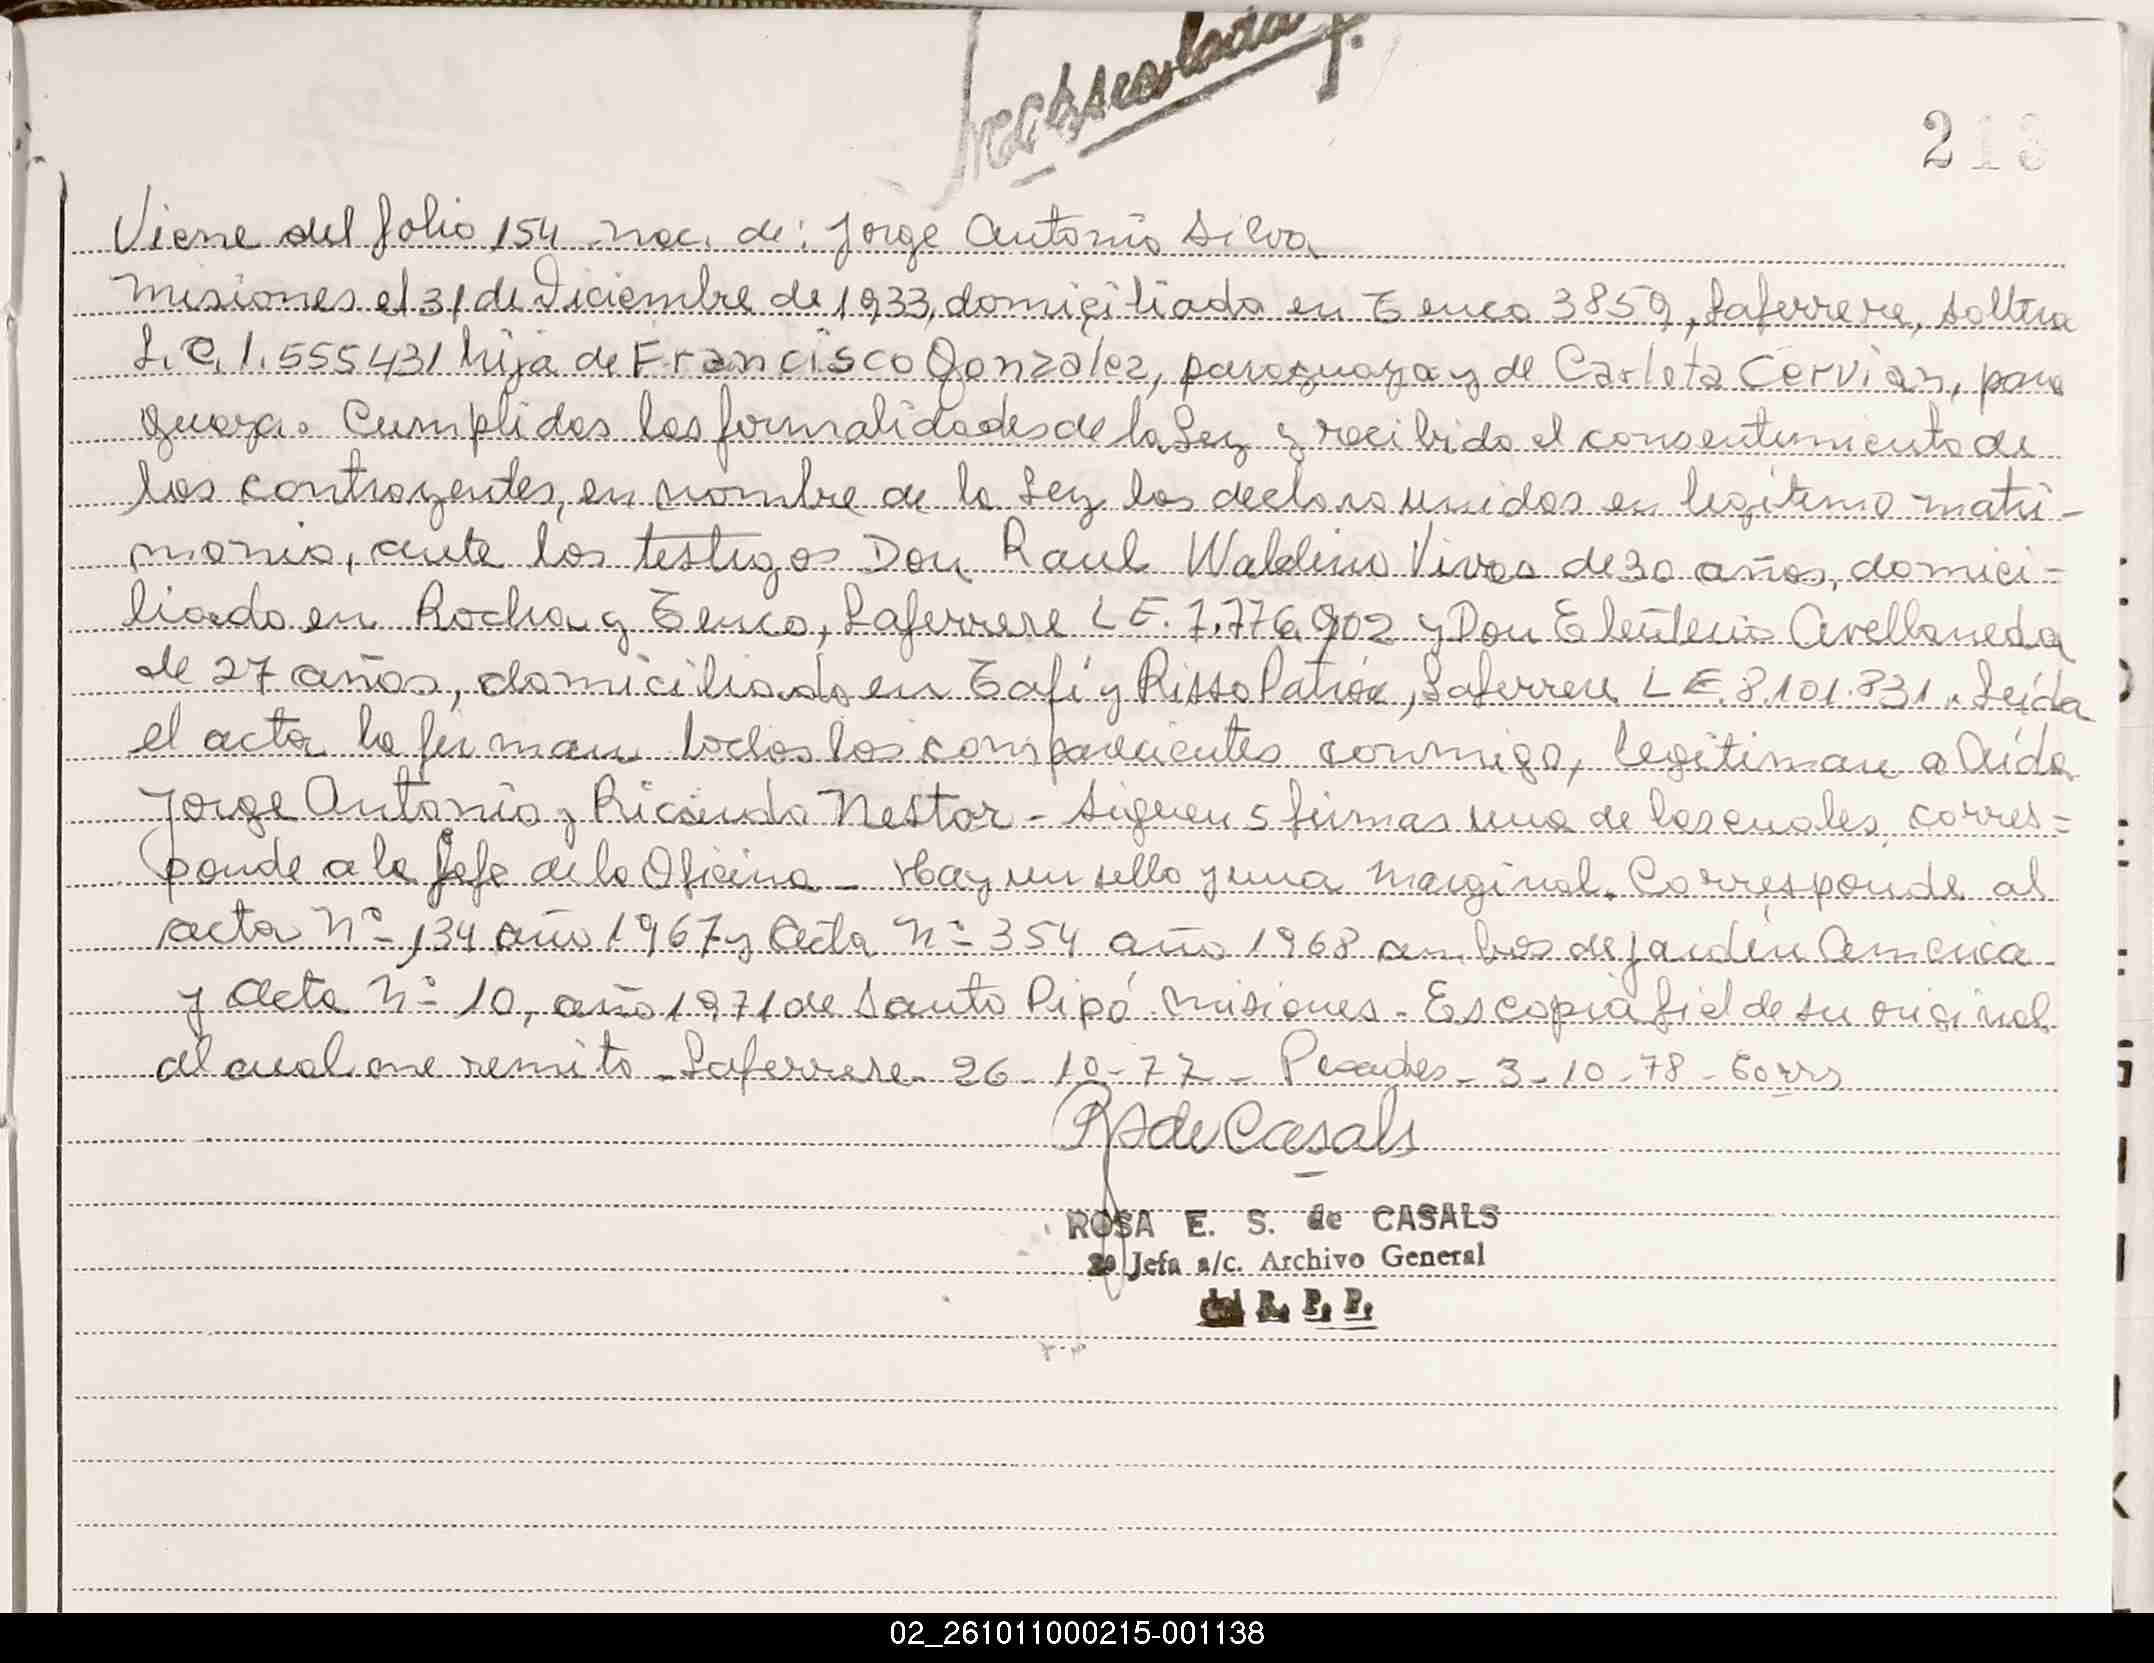 213
Viene del folio 154 nac. de: Jorge Antonio Silva
Misiones el 31 de Diciembre de 1933, domiciliada en Tenco 3859, Laferrere, soltera
L.C. 1.555431 hija de Francisco González, paraguaya y de Carlota Cervián, para
guaya. Cumplidas las formalidades de la Ley y recibido el consentimiento de
los contrayentes, en nombre de la Ley los declaro unidos en legítimo matri-
monio, ante los testigos Don Raul Waldino Vivas de 30 años, domici-
liado en Rocha y Tenco, Laferrere LE. 7.776.902 y Don Eleuterio Avellaneda
de 27 años, domiciliado en Tafí y Risso Patrón, Laferrere LE. 8.101.831. Leída
el acta la firman todos los comparecientes conmigo, legitiman a Aída
Jorge Antonio y Ricardo Nestor - Siguen 5 firmas una de las cuales, corres=
ponde a la Jefe de la Oficina - Hay un sello y una marginal. Corresponde al
acta Nº 134 año 1967 y Acta Nº 354 año 1968 ambos de Jardín America
y Acta Nº 10, año 1971 de Santo Pipó Misiones - Es copia fiel de su original
al cual me remito - Laferrere - 26 - 10 - 77 - 3 - 10 - 78 -
de Casals
ROSA E. S. de CASALS
Jefa a/c. Archivo General
del R. P. P.
02_261011000215-001138